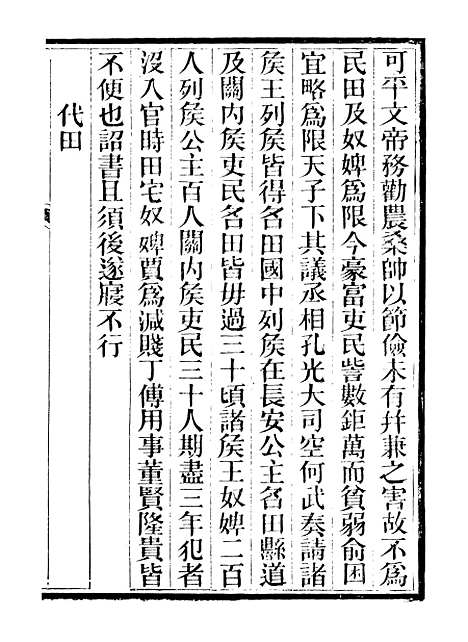 可平文帝務勸農桑帥以節儉未有幷兼之害故不爲
民田及奴婢爲限今豪富吏民訾數鉅萬而貧弱俞困
宜略爲限天子下其議丞相孔光大司空何武奏請諸
矦王列矦皆得名田國中列矦在長安公主名田縣道
及關内矦吏民名田皆毋過三十頃諸矦王奴婢二百
人列矦公主百人關内矦吏民三十人期盡三年犯者
沒入官時田宅奴婢賈爲減賤丁傅用事董賢隆貴皆
不便也詔書且須後遂寢不行
代田